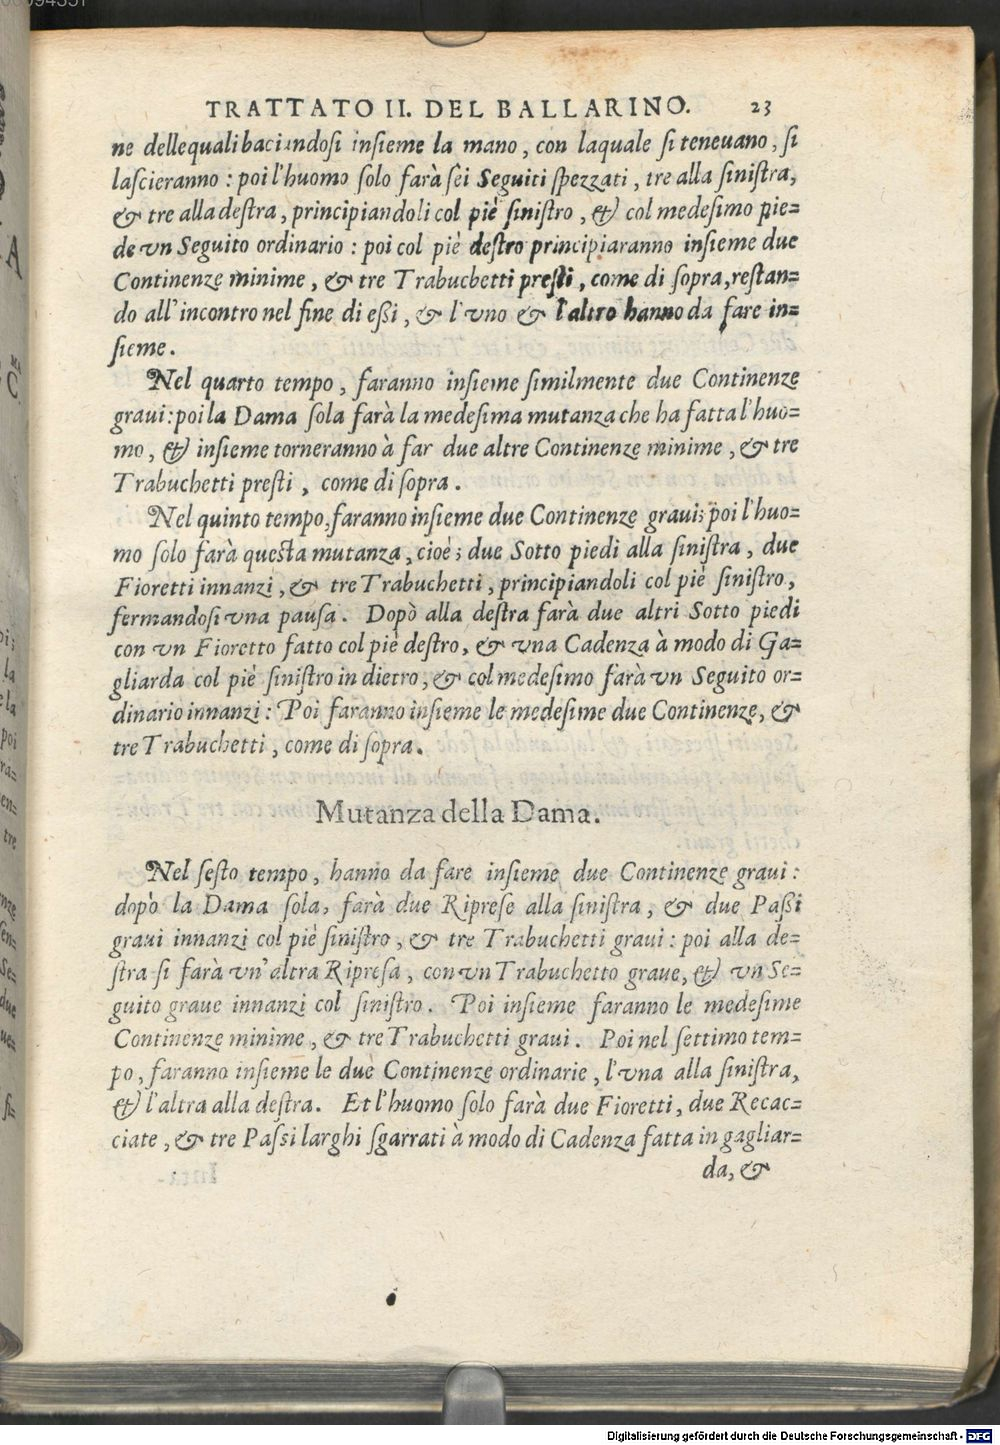 TRATTATO II. DEL BALLARINO. 23
ne dellequali baciandosi insieme la mano, con laquale si teneuano, si
lascieranno: poi l'huomo solo farà sei Seguiti spezzati, tre alla sinistra,
& tre alla destra, principiandoli col piè sinistro, & col medesimo pie=
de vn Seguito ordinario: poi col piè destro principiaranno insieme due
Continenze minime, & tre Trabuchetti presti, come di sopra, restan=
do all'incontro nel fine di eßi, & l'vno & l'altro hanno da fare in=
sieme.
Nel quarto tempo, faranno insieme similmente due Continenze
graui: poi la Dama sola farà la medesima mutanza che ha fatta l'huo=
mo, & insieme torneranno à far due altre Continenze minime, & tre
Trabuchetti presti, come di sopra.
Nel quinto tempo, faranno insieme due Continenze graui; poi l'huo=
mo solo farà questa mutanza, cioè; due Sotto piedi alla sinistra, due
Fioretti innanzi, & tre Trabuchetti, principiandoli col piè sinistro,
fermandosi vna pausa. Dopò alla destra farà due altri Sotto piedi
con vn Fioretto fatto col piè destro, & vna Cadenza à modo di Ga=
gliarda col piè sinistro in dietro, & col medesimo farà vn Seguito or=
dinario innanzi: Poi faranno insieme le medesime due Continenze, &
tre Trabuchetti, come di sopra.
Mutanza della Dama.
Nel sesto tempo, hanno da fare insieme due Continenze graui:
dopò la Dama sola, farà due Riprese alla sinistra, & due Paßi
graui innanzi col piè sinistro, & tre Trabuchetti graui: poi alla de=
stra si farà vn'altra Ripresa, con vn Trabuchetto graue, & vn Se=
guito graue innanzi col sinistro. Poi insieme faranno le medesime
Continenze minime, & tre Trabuchetti graui. Poi nel settimo tem=
po, faranno insieme le due Continenze ordinarie, l'vna alla sinistra,
& l'altra alla destra. Et l'huomo solo farà due Fioretti, due Recac=
ciate, & tre Passi larghi sgarrati à modo di Cadenza fatta in gagliar=
da, &
Digitalisierung gefördert durch die Deutsche Forschungsgemeinschaft - DFG